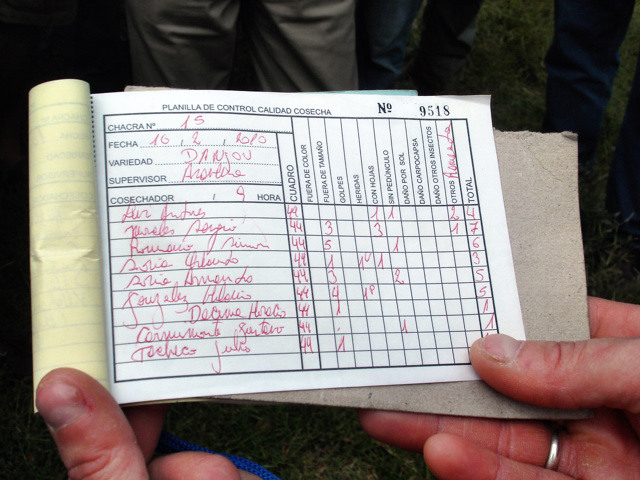 PLANILLA DE CONTROL CALIDAD COSECHA Nº 9518
CHACRA Nº 15
FECHA 16, 2, 2010
VARIEDAD DANJOU
SUPERVISOR
COSECHADOR 9 HORA
CUADRO
FUERA DE COLOR
FUERA DE TAMAÑO
GOLPES
HERIDAS
CON HOJAS
SIN PEDÚNCULO
DAÑO POR SOL
DAÑO CARPOCAPSA
DAÑO OTROS INSECTOS
OTROS
TOTAL
Luis Andres 44 1 1 2 4
Morales Sergio 44 3 3 1 7
Romano Simon 44 5 1 6
Soria Orlando 44 1 1 3
Soria Armando 44 3 2 5
Gonzalez Hilario 44 4 5
Decima Horacio 44 1 1
Gustavo 44 1 1
Pacheco Julio 44 1